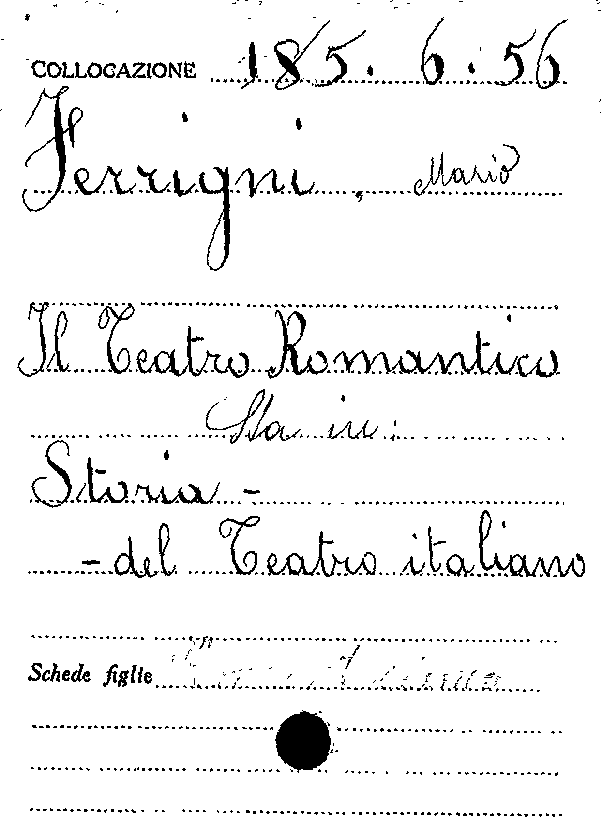 COLLOCAZIONE 185.6.56
Ferrigni, Mario
Il Teatro Romantico
Sta in:
Storia -
- del Teatro italiano
Schede figlie